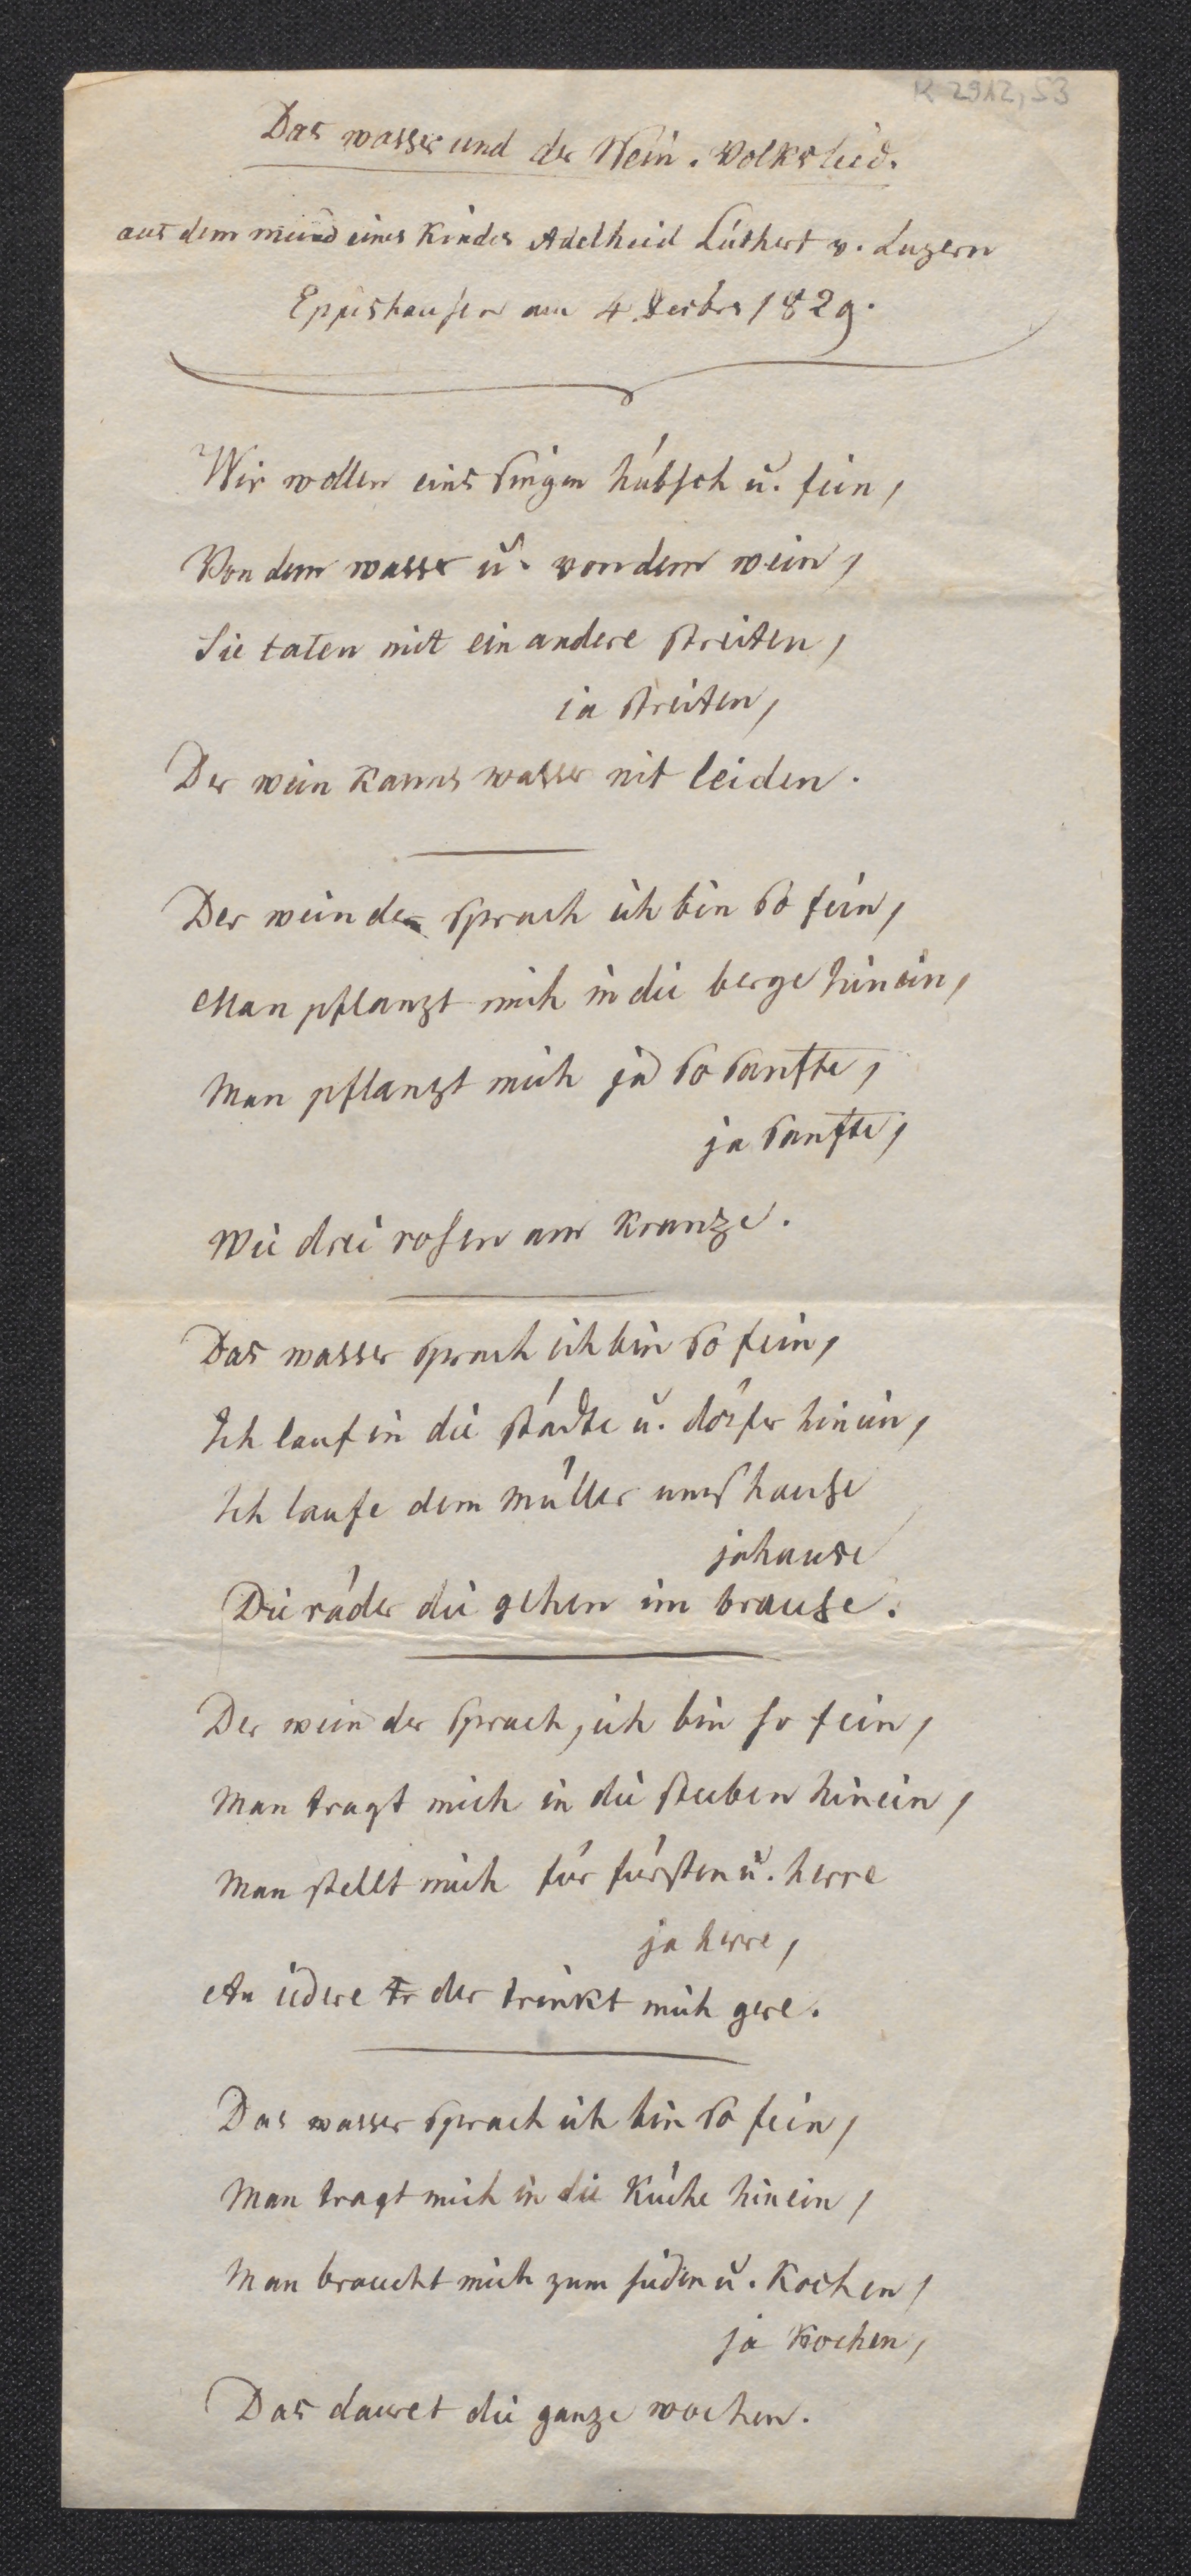 K 2912, 53
Das wasser und der Wein. Volkslied.
aus dem mund eines Kindes Adelheid Lüthert v. Luzern
Eppishausen am 4 1829.
Wir wollen eins singen hübsch u. fein,
Von dem wasser u. von dem wein,
Sie taten mit ein andere streiten,
ja streiten,
Der wein kanns wasser nit leiden.
Der wein der sprach ich bin so fein,
Man pflanzt mich in die berge hinein,
Man pflanzt mich ja so sanfte,
ja sanfte,
Wie drei rosen am kranze.
Das wasser sprach ich bin so fein,
Ich lauf in die städte u. dörfer hinein,
Ich laufe dem müller ums hause
ja hause
Die räder die gehen im brause.
Der wein der sprach, ich bin so fein,
Man tragt mich in die stuben hinein,
Man stellt mich für fürsten u. herre
ja herre,
An iedere tr der trinkt mich gere.
Das wasser sprach ich bin so fein,
Man tragt mich in die Küche hinein,
Man braucht mich zum sieden u. Kochen,
ja Kochen,
Das dauret die ganze wochen.